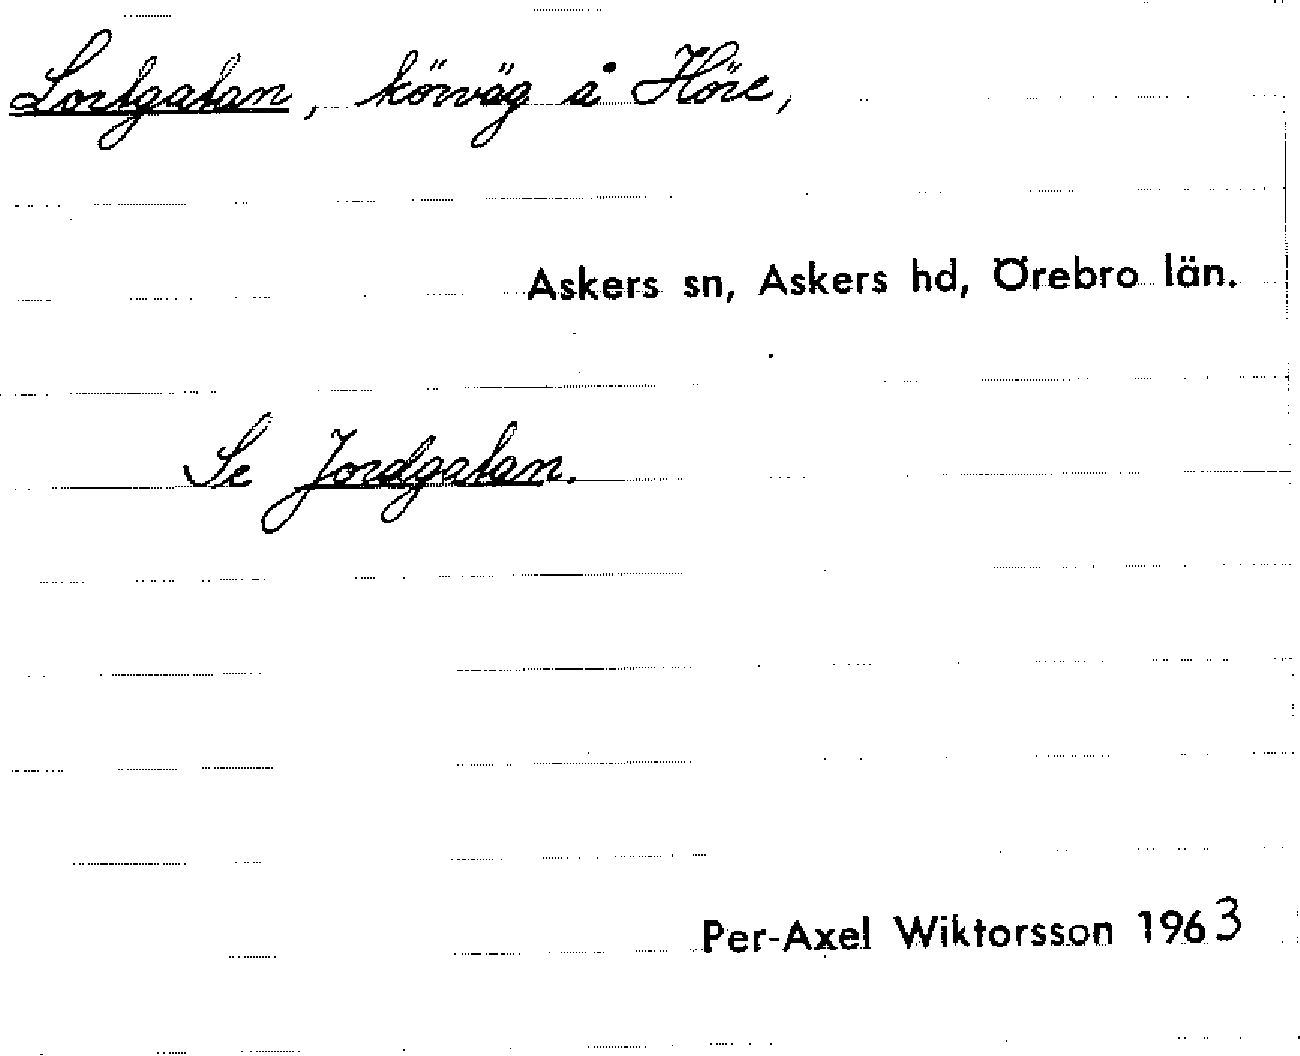 Lortgatan, körväg å Höre,
Askers sn, Askers hd, Örebro län.
Se Jordgatan.
Per-Axel Wiktorsson 1963